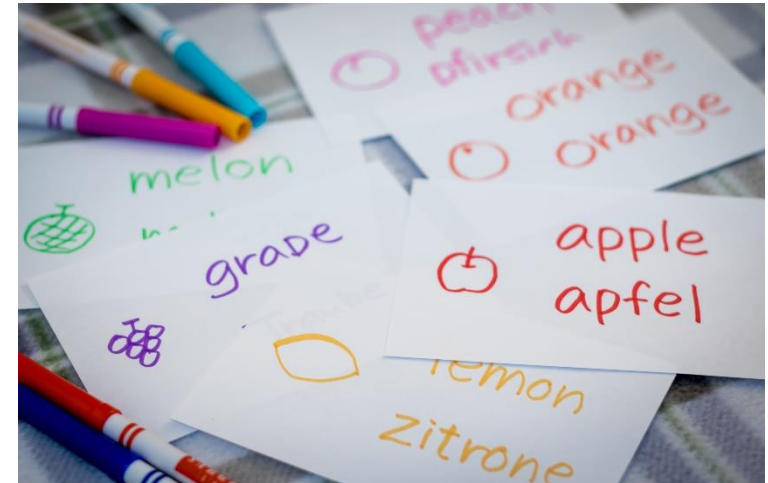 peach
pfirsich
orange
orange
melon
grape
apple
apfel
lemon
zitrone